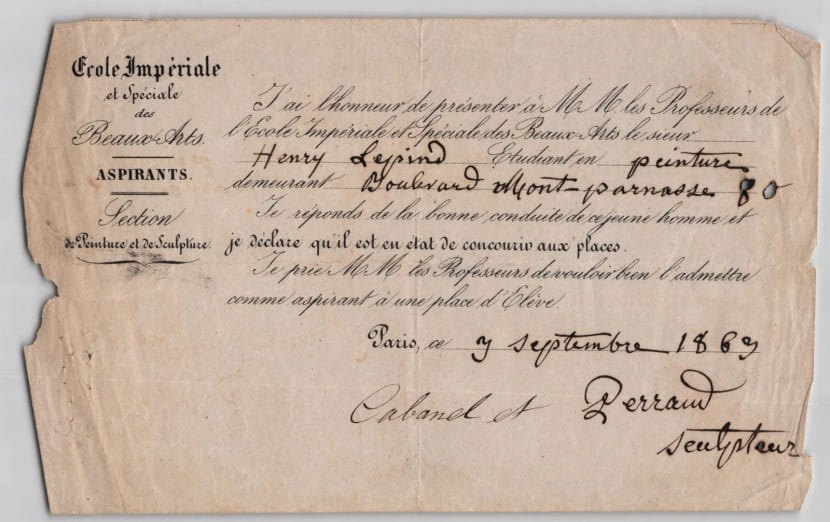 Ecole Impériale
et Spéciale
des
Beaux-Arts.
ASPIRANTS.
Section
de Peinture et de Sculpture.
J'ai l'honneur de présenter à M.M. les Professeurs de
l'Ecole Impériale et Spéciale des Beaux Arts le sieur
Henry Lepind Etudiant en peinture
demeurant Boulevard Mont-parnasse 80
Je réponds de la bonne conduite de ce jeune homme et
je déclare qu'il est en état de concourir aux places.
Je prie M.M. les Professeurs de vouloir bien l'admettre
comme aspirant à une place d'Elève.
Paris, ce septembre
Cabanel et Perraud
sculpteur